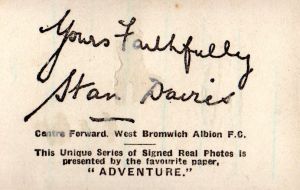 Yours Faithfully
Stan Davies
Centre Forward, West Bromwich Albion F.C.
This Unique Series of Signed Real Photos is
presented by the favourite paper,
"ADVENTURE."